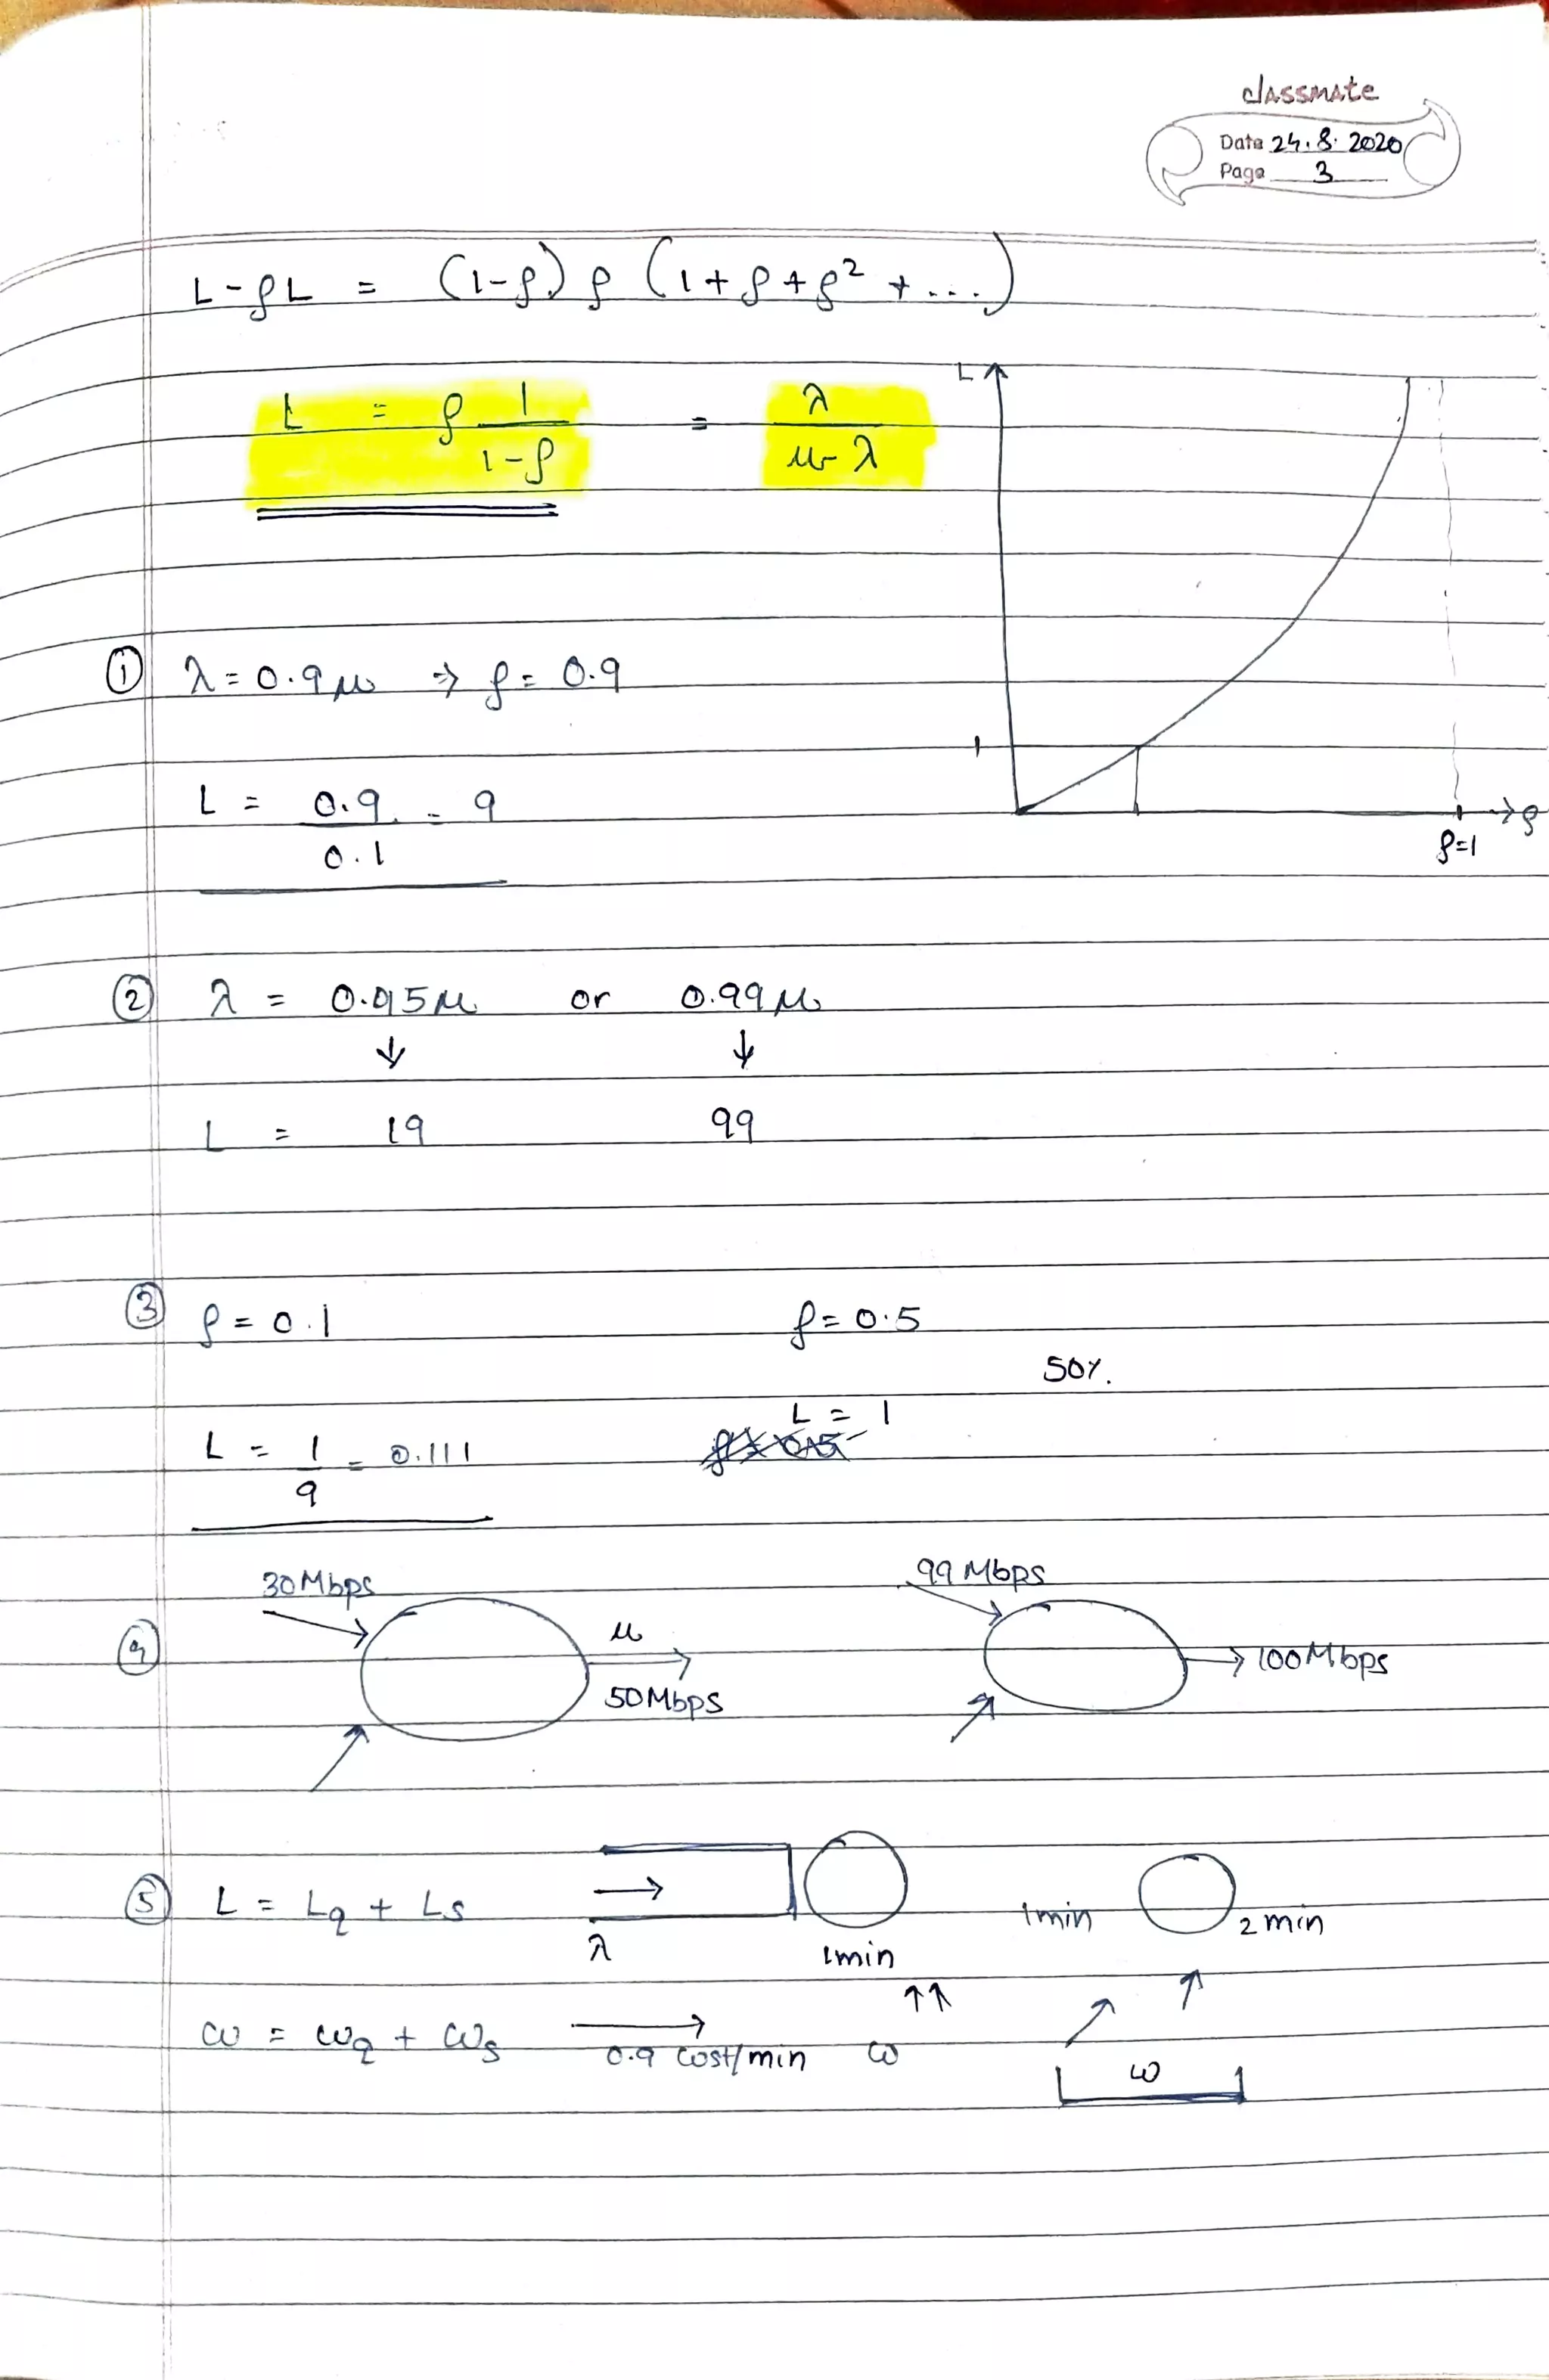 classmate
Date 24.8.2020
Page 3
L-ρL = (1-ρ) ρ (1+ρ+ρ² + ...)
L = ρ 1/(1-ρ) = λ/(μ-λ)
L
1
ρ
ρ=1
① λ = 0.9μ ⇒ ρ = 0.9
L = 0.9/0.1 = 9
② λ = 0.95μ or 0.99μ
↓ ↓
L = 19 99
③ ρ = 0.1 ρ = 0.5
50%.
L = 1
L = 1/9 = 0.111
30Mbps 99 Mbps
④ μ 100Mbps
50Mbps
⑤ L = Lq + Ls 1min 2 min
λ 1min
↑↑
ω = ωq + ωs 0.9 cost/min ω ω